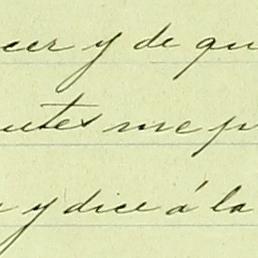 cer y de qu
utes me p
y dice á la